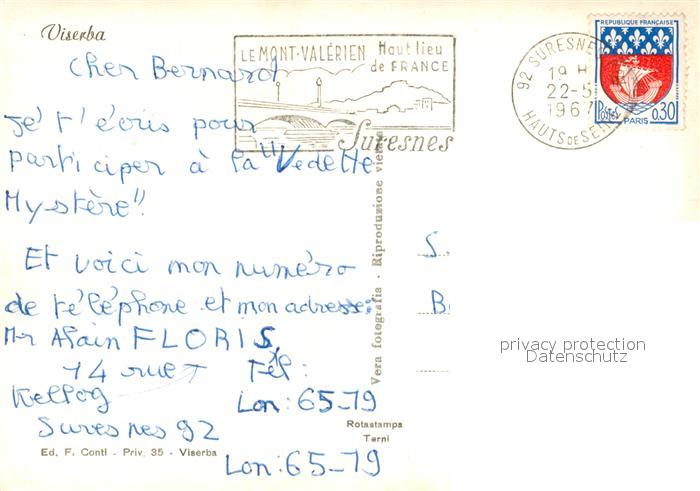 Viserba
LE MONT-VALÉRIEN Haut lieu
de FRANCE
Suresnes
92 SURESNES
19 H
22-5
1967
HAUTS DE SEINE
REPUBLIQUE FRANÇAISE
Postes 0,30
PARIS
Cher Bernard
Je t'écris pour
participer à la "Vedette
Mystère".
Et voici mon numéro
de téléphone et mon adresse:
Mr Alain FLORIS
14 rue Tél:
Kellog Lon: 65-79
Suresnes 92
Lon: 65-79
S
B
Vera fotografia - Riproduzione vietata
Rotastampa
Terni
Ed. F. Conti - Priv. 35 - Viserba
privacy protection
Datenschutz